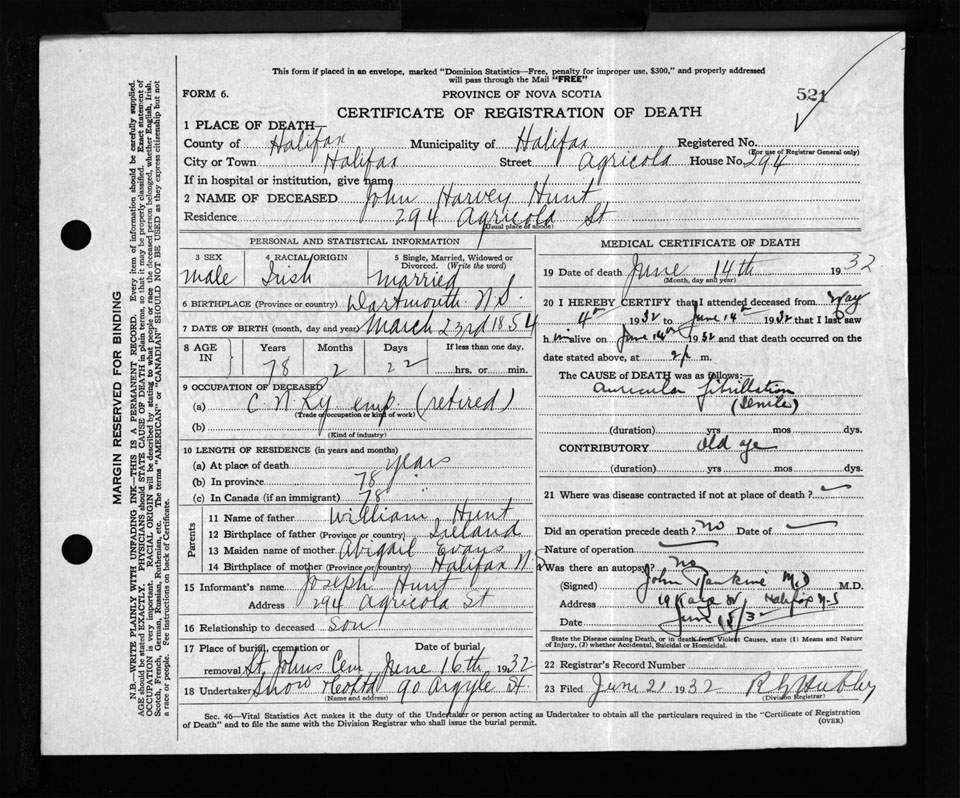 This form if placed in an envelope, marked "Dominion Statistics—Free, penalty for improper use, $300," and properly addressed
will pass through the Mail "FREE"
FORM 6.
PROVINCE OF NOVA SCOTIA
521
CERTIFICATE OF REGISTRATION OF DEATH
1 PLACE OF DEATH—
County of Halifax Municipality of Halifax Registered No.
(For use of Registrar General only)
City or Town Halifax Street Agricola House No. 294
If in hospital or institution, give name
2 NAME OF DECEASED John Harvey Hunt
Residence 294 Agricola St
(Usual place of abode)
PERSONAL AND STATISTICAL INFORMATION
3 SEX 4 RACIAL ORIGIN 5 Single, Married, Widowed or
Divorced. (Write the word)
male Irish married
6 BIRTHPLACE (Province or country) Dartmouth N.S.
7 DATE OF BIRTH (month, day and year) March 23rd 1854
8 AGE
IN
Years Months Days If less than one day,
78 2 22 hrs. or min.
9 OCCUPATION OF DECEASED
(a) C N Ry emp. (retired)
(Trade occupation or kind of work)
(b)
(Kind of industry)
10 LENGTH OF RESIDENCE (in years and months)
(a) At place of death years
(b) In province 78 "
(c) In Canada (if an immigrant) 78
Parents
11 Name of father William Hunt
12 Birthplace of father (Province or country) Ireland
13 Maiden name of mother Abigail Evans
14 Birthplace of mother (Province or country) Halifax N S
15 Informant's name Joseph Hunt
Address 294 Agricola St
16 Relationship to deceased son
17 Place of burial, cremation or Date of burial
removal St Johns Cem June 16th 1932
18 Undertaker Snow 90 Argyle St.
(Name and address)
MEDICAL CERTIFICATE OF DEATH
19 Date of death June 14th 1932
(Month, day and year)
20 I HEREBY CERTIFY that I attended deceased from May
4th 1932 to June 14th 1932 that I last saw
him alive on June 14th 1932 and that death occurred on the
date stated above, at 2 p m.
The CAUSE OF DEATH was as follows:—
auricular fibrillation
(senile)
(duration) yrs mos dys.
CONTRIBUTORY old age
(duration) yrs mos dys.
21 Where was disease contracted if not at place of death?
Did an operation precede death? no Date of
Nature of operation
Was there an autopsy? no
(Signed) John Rankine M.D M.D.
Address Halifax N-S
Date June 15/32
State the Disease causing Death, or in death from Violent Causes, state (1) Means and Nature
of Injury, (2) whether Accidental, Suicidal or Homicidal.
22 Registrar's Record Number
23 Filed June 21 1932 R Hubley
(Division Registrar)
Sec. 46—Vital Statistics Act makes it the duty of the Undertaker or person acting as Undertaker to obtain all the particulars required in the "Certificate of Registration
of Death" and to file the same with the Division Registrar who shall issue the burial permit.
(OVER)
MARGIN RESERVED FOR BINDING
N.B.—WRITE PLAINLY WITH UNFADING INK—THIS IS A PERMANENT RECORD. Every item of information should be carefully supplied.
AGE should be stated EXACTLY. PHYSICIANS should STATE CAUSE OF DEATH in plain terms, so that it may be properly classified. Exact statement of
OCCUPATION is very important. RACIAL ORIGIN will be described by stating to what people or race the deceased person belonged, whether English, Irish,
Scotch, French, German, Russian, Ruthenian, etc. The terms "AMERICAN" or "CANADIAN" SHOULD NOT BE USED as they express citizenship but not
a race or people. See instructions on back of Certificate.